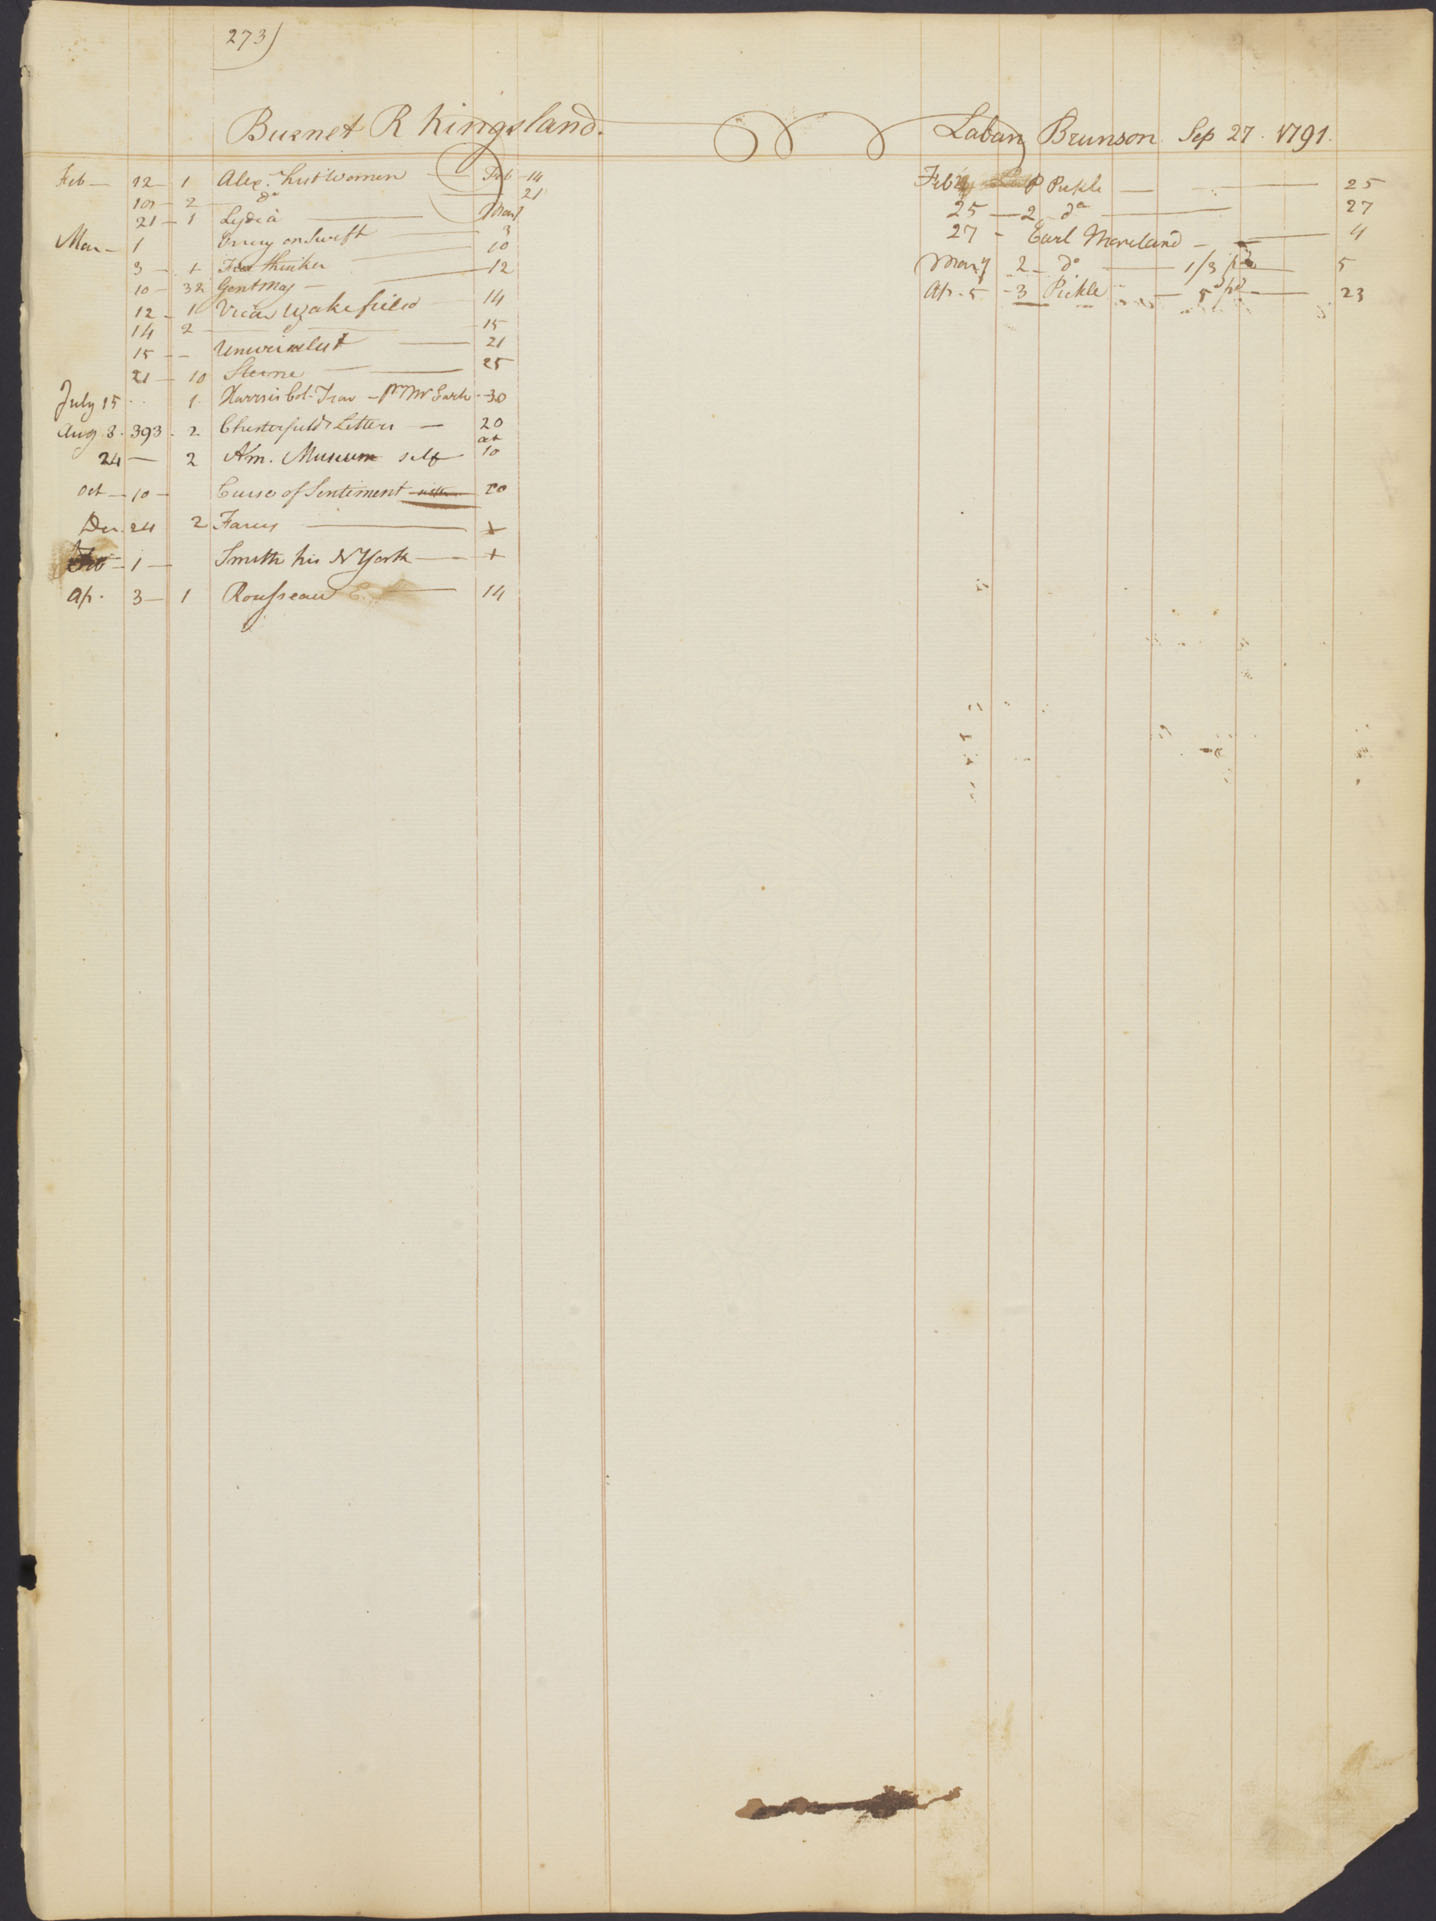 273)
Burnet R Kingsland.
Feb — 12 — 1 Alex. Hist Women — Feb 14
2 — do — 21
21 — 1 Lydia — Mar
Mar — 1 Orrery on Swift — 3
3 — 1 Free thinker — 10
10 — 32 Gent Mag — 12
12 — 1 Vicar Wakefield — 14
14 2 — — 15
15 — — — 21
21 — 10 Sterne — 25
July 15 1 Harris's Col. Trav — pr Mr — 30
Aug 3. 393. 2 Chesterfields Letters — 20
24 — 2 Am. Museum self at 10
Oct — 10 — Curse of Sentiment 20
Dec. 24 2 Fancy — +
1 — Smith his N York — +
Ap. 3 — 1 Rousseau — 14
Laban Brunson Sep 27. 1791.
Feb P Pickle — 25
25 — 2 do — 27
27 - Earl Moreland — 4
2 — do — 1/3 pd — 5
Ap. 5 - 3 Pickle — 5 pd — 23